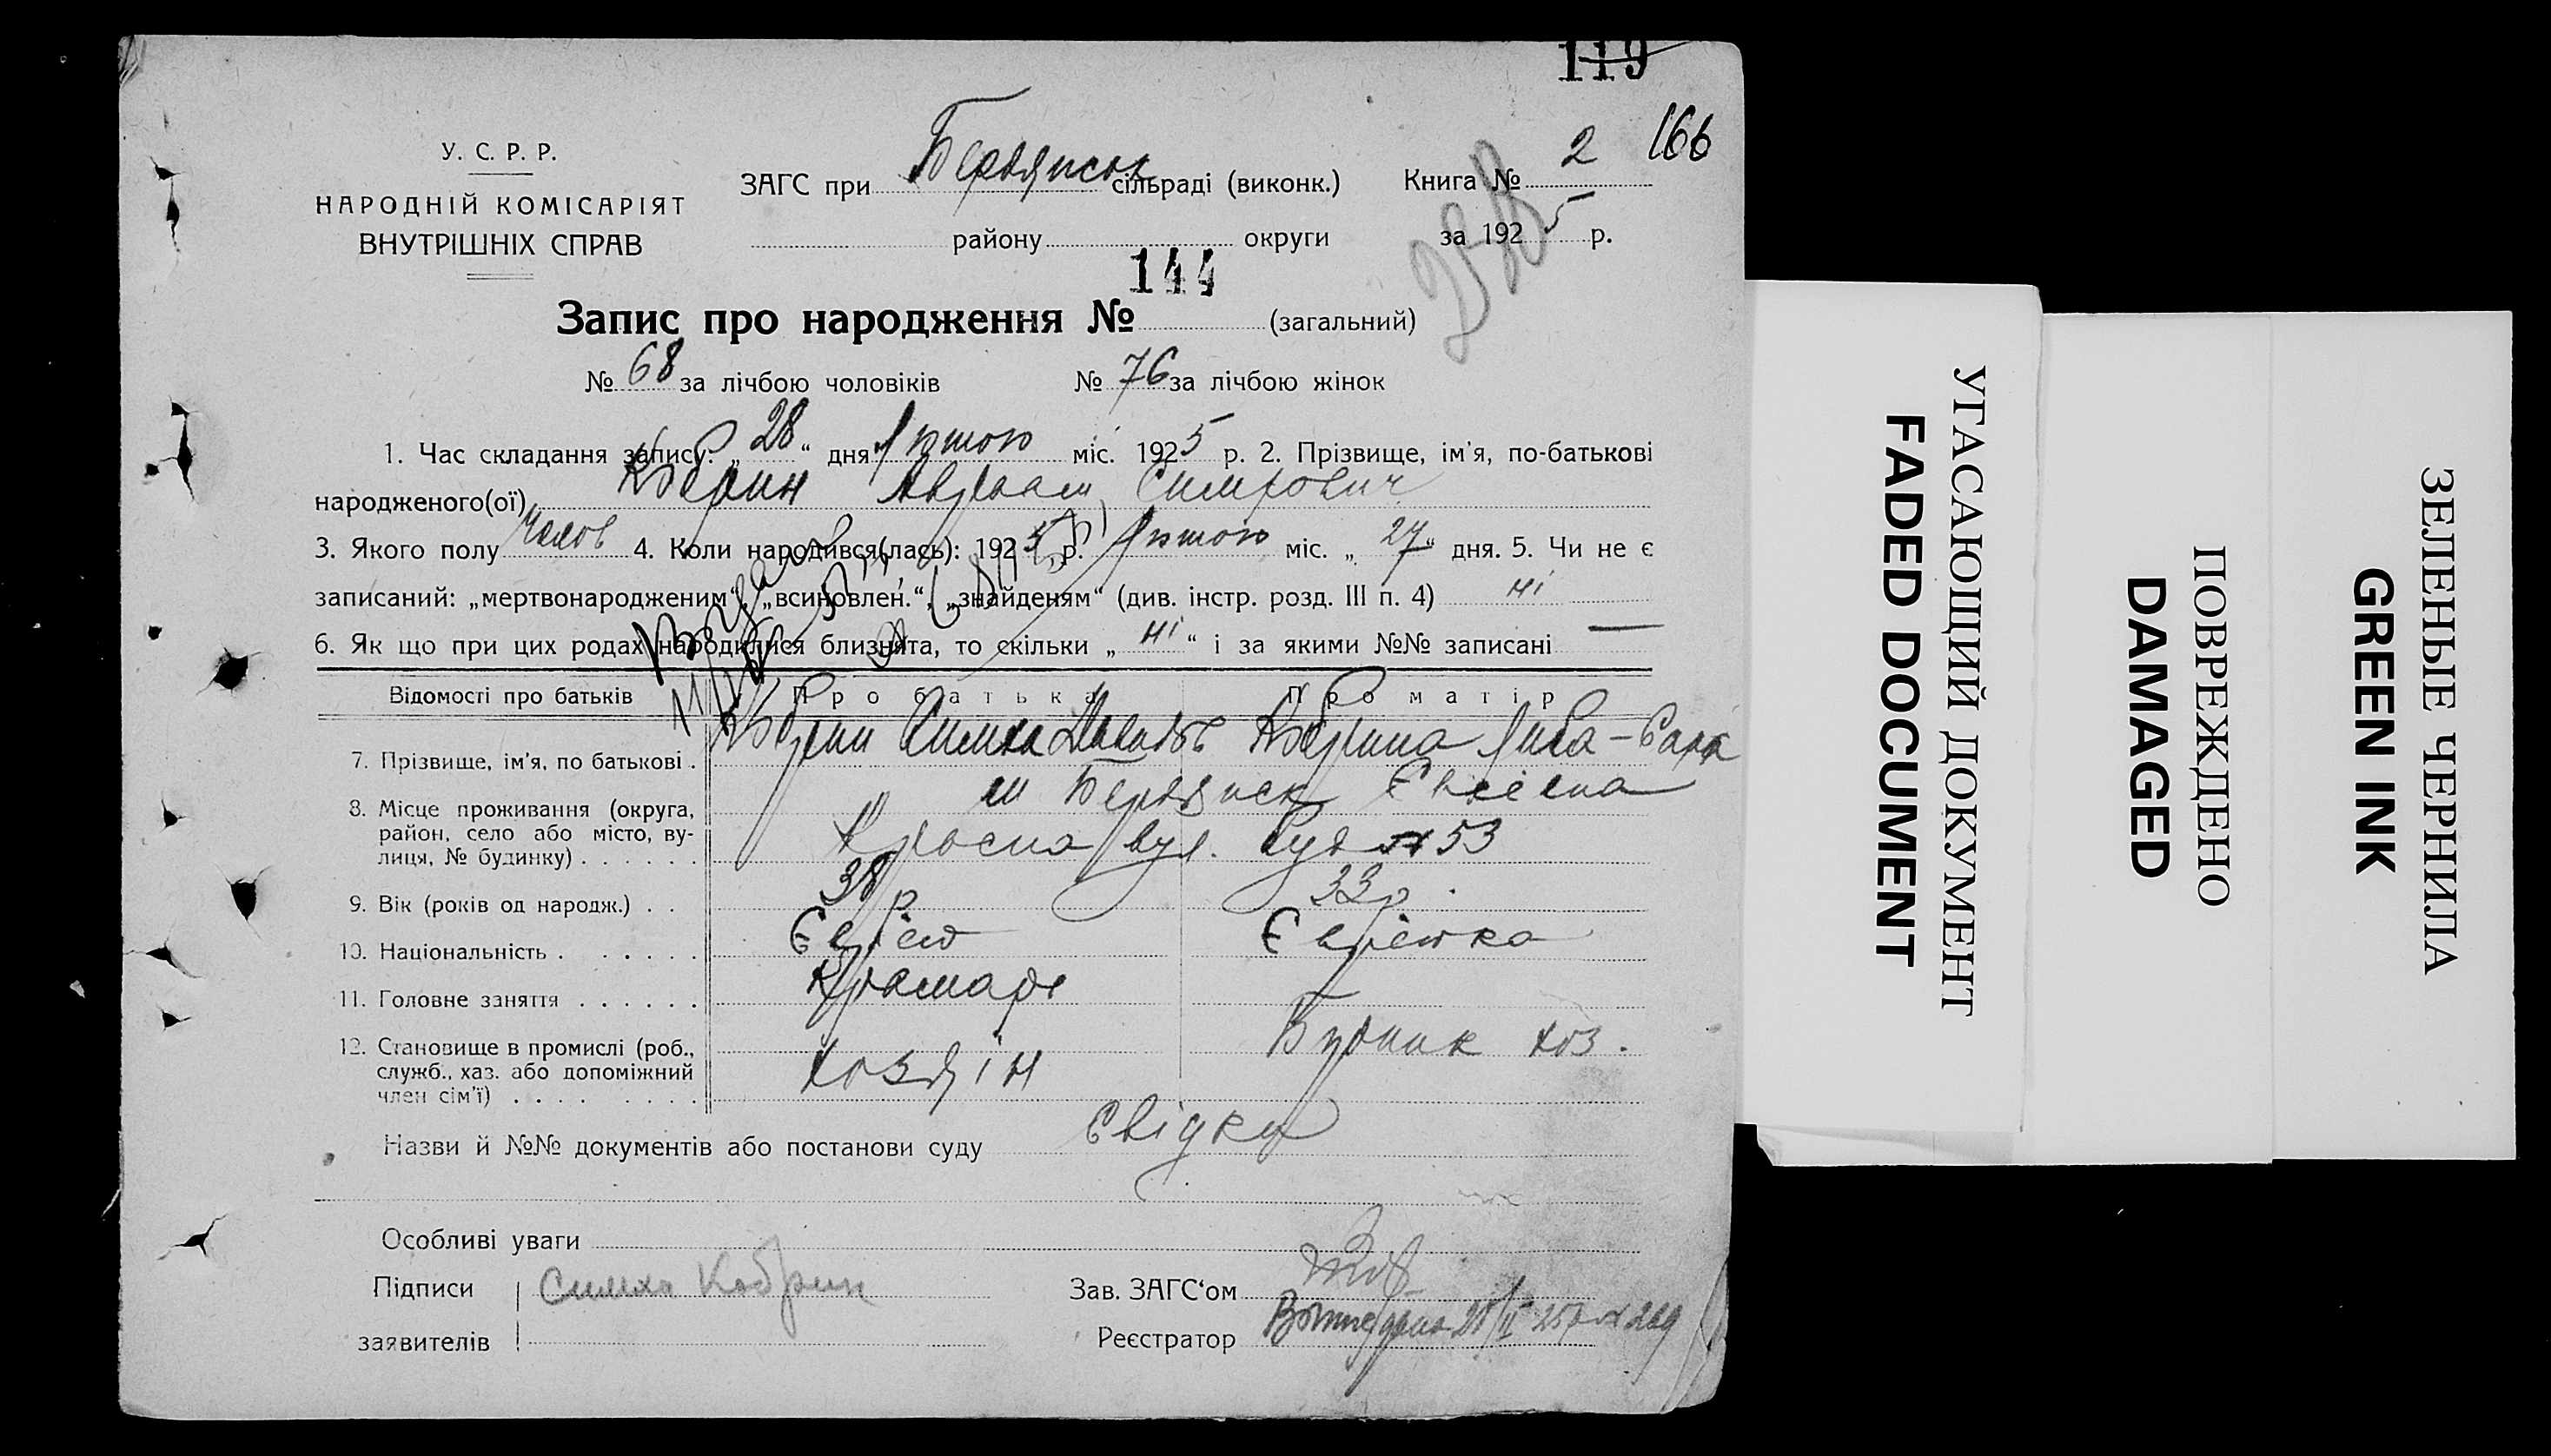 119
166
У. С. Р. Р.
НАРОДНІЙ КОМІСАРІЯТ
ВНУТРІШНІХ СПРАВ
ЗАГС при Бердянськ сільраді (виконк.) Книга № 2
району округи за 1925 р.
144
Запис про народження № (загальний)
№ 68 за лічбою чоловіків № 76 за лічбою жінок
1. Час складання запису: „28“ дня Лютого міс. 1925 р. 2. Прізвище, ім'я, по-батькові
народженого(ої) Кобрин Авраам Симхович
3. Якого полу Чолов 4. Коли народився(лась): 1925 р. Лютого міс. „27“ дня. 5. Чи не є
записаний: „мертвонародженим“, „всиновлен.“, „знайденям“ (див. інстр. розд. III п. 4) ні
6. Як що при цих родах народилися близнята, то скільки „ні“ і за якими №№ записані —
Відомості про батьків Про батька Про матір
7. Прізвище, ім'я, по батькові . Кобрин Симха Кобрина Либа-Сара
8. Місце проживання (округа, район, село або місто, вулиця, № будинку) . . . . . . м Бердянськ
Красна вул. Буд № 53
9. Вік (років од народж.) . . 38 р 33 р.
10. Національність . . . . . . . Єврей Єврейка
11. Головне заняття . . . . . . Крамарь
12. Становище в промислі (роб., служб., хаз. або допоміжний член сім'ї) . . . . . . . . Хозяїн хоз.
Назви й №№ документів або постанови суду Свідки
Особливі уваги
Підписи Симха Кобрин Зав. ЗАГС'ом
заявителів Реєстратор
УГАСАЮЩИЙ ДОКУМЕНТ
FADED DOCUMENT
ПОВРЕЖДЕНО
DAMAGED
ЗЕЛЕНЫЕ ЧЕРНИЛА
GREEN INK